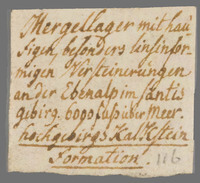 Mergellager mit häu
figen, besonders linsinfor
migen Versteinerungen
an der Ebenalp im Säntis
gebirg. 6090 Fuß über Meer.
Hochgebirgs Kalkstein
Formation.
116